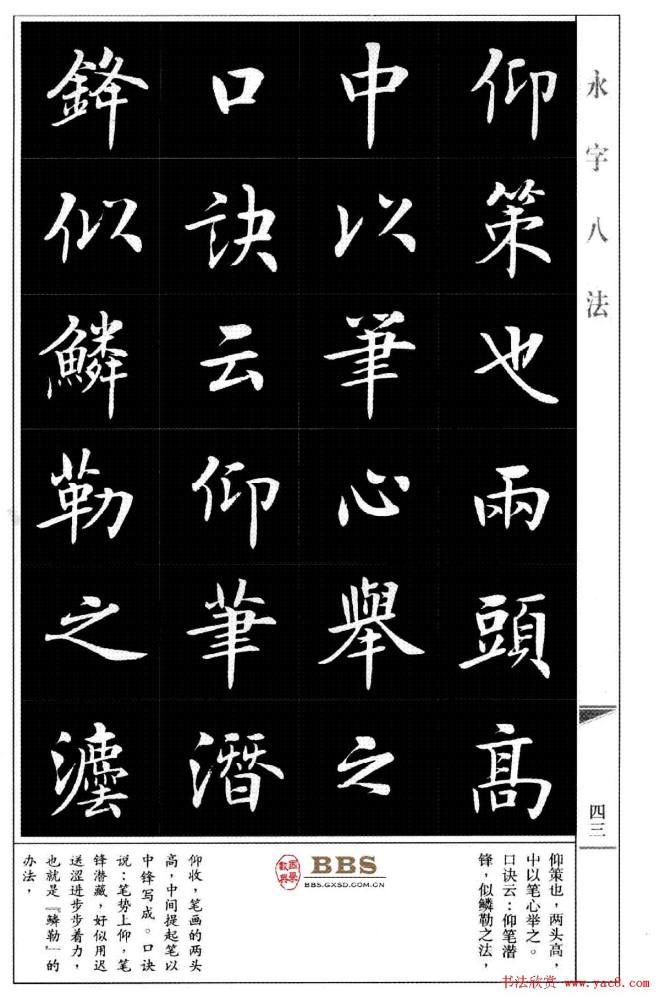 永字八法
四三
仰策也兩頭髙
中以筆心舉之
口訣云仰筆潛
鋒似鱗勒之灋
仰策也，两头高，
中以笔心举之。
口诀云：仰笔潜
锋，似鳞勒之法，
BBS
BBS.GXSD.COM.CN
仰收，笔画的两头
高，中间提起笔以
中锋写成。口诀
说：笔势上仰，笔
锋潜藏，好似用迟
送涩进步步着力，
也就是『鳞勒』的
办法，
书法欣赏 www.yac8.com